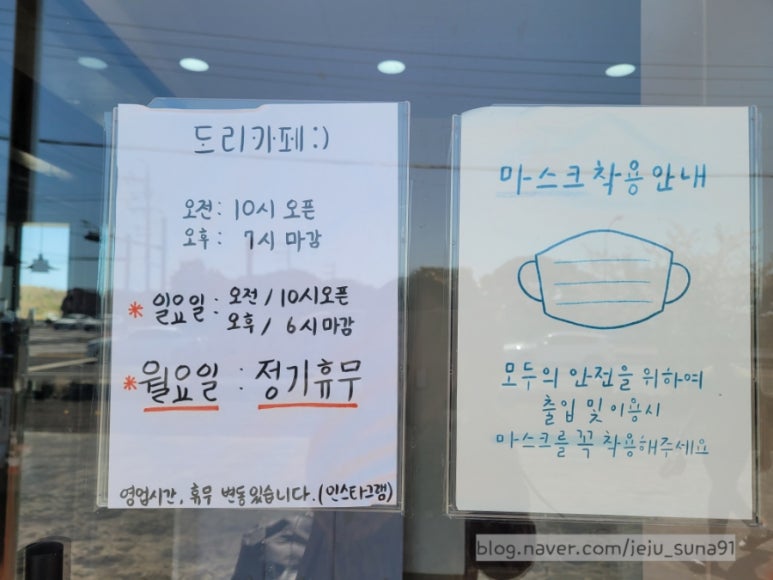 도리카페:)
오전: 10시 오픈
오후: 7시 마감
* 일요일: 오전/10시오픈
오후/6시마감
* 월요일: 정기휴무
영업시간, 휴무 변동있습니다.(인스타그램)
마스크 착용 안내
모두의 안전을 위하여
출입 및 이용시
마스크를 꼭 착용해주세요
blog.naver.com/jeju_suna91